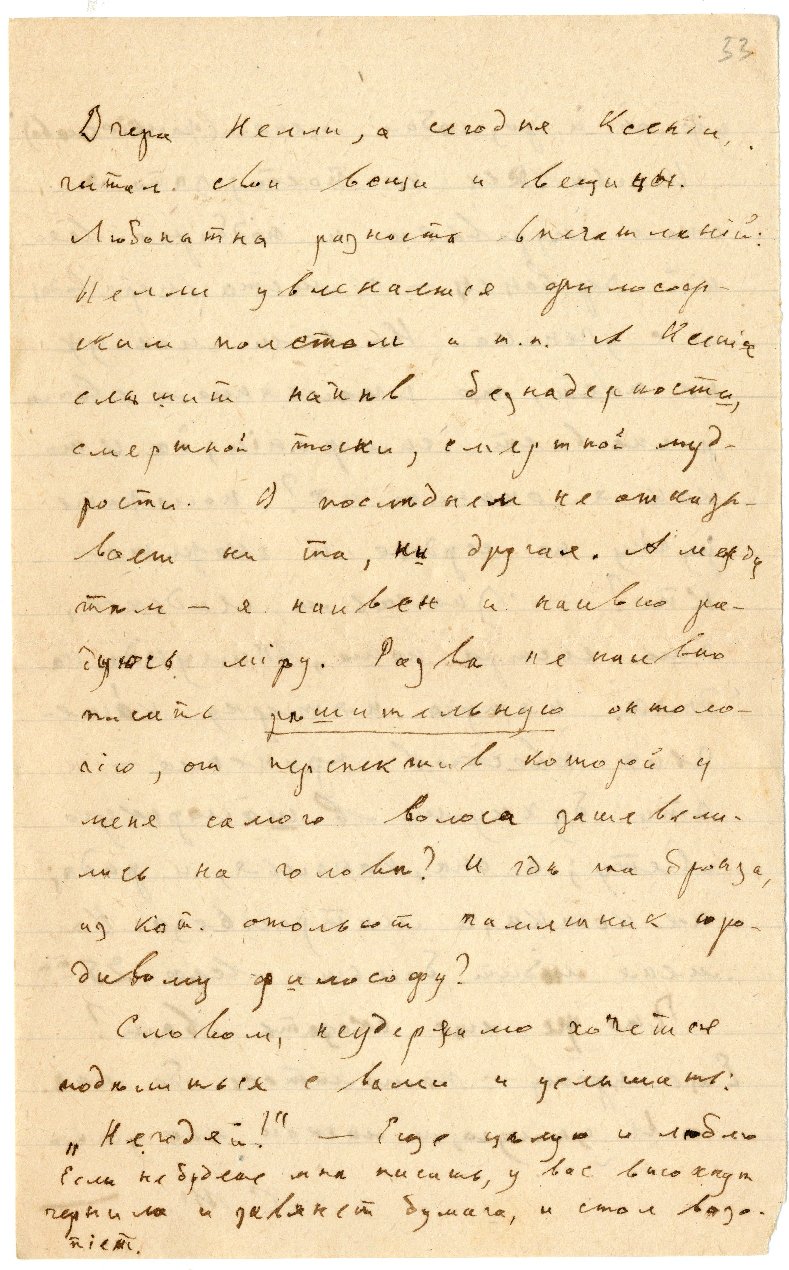 33
Вчера Нелли, а сегодня Ксении,
читал свои вещи и вещицы.
Любопытна разность впечатлѣній:
Нелли увлекается философ-
ским полетом и т.п. А Ксенія
слышит напѣв безнадежности,
смертной тоски, смертной муд-
рости. В последнем не отказы-
вает ни та, ни другая. А между
тѣм — я наивен и наивно ра-
дуюсь міру. Разва не наивно
писать рѣшительную онтоло-
гію, от перспектив которой у
меня самого волоса зашевели-
лись на головѣ? И гдѣ та бронза,
из кот. отольют памятник юро-
дивому философу?
Словом, неудержимо хочется
подѣлиться с вами и услышать:
„Негодяй!“ — Еще цѣлую и люблю
Если не будете мнѣ писать, у вас высохнут
чернила и завянет бумага, и стол возо-
піет.